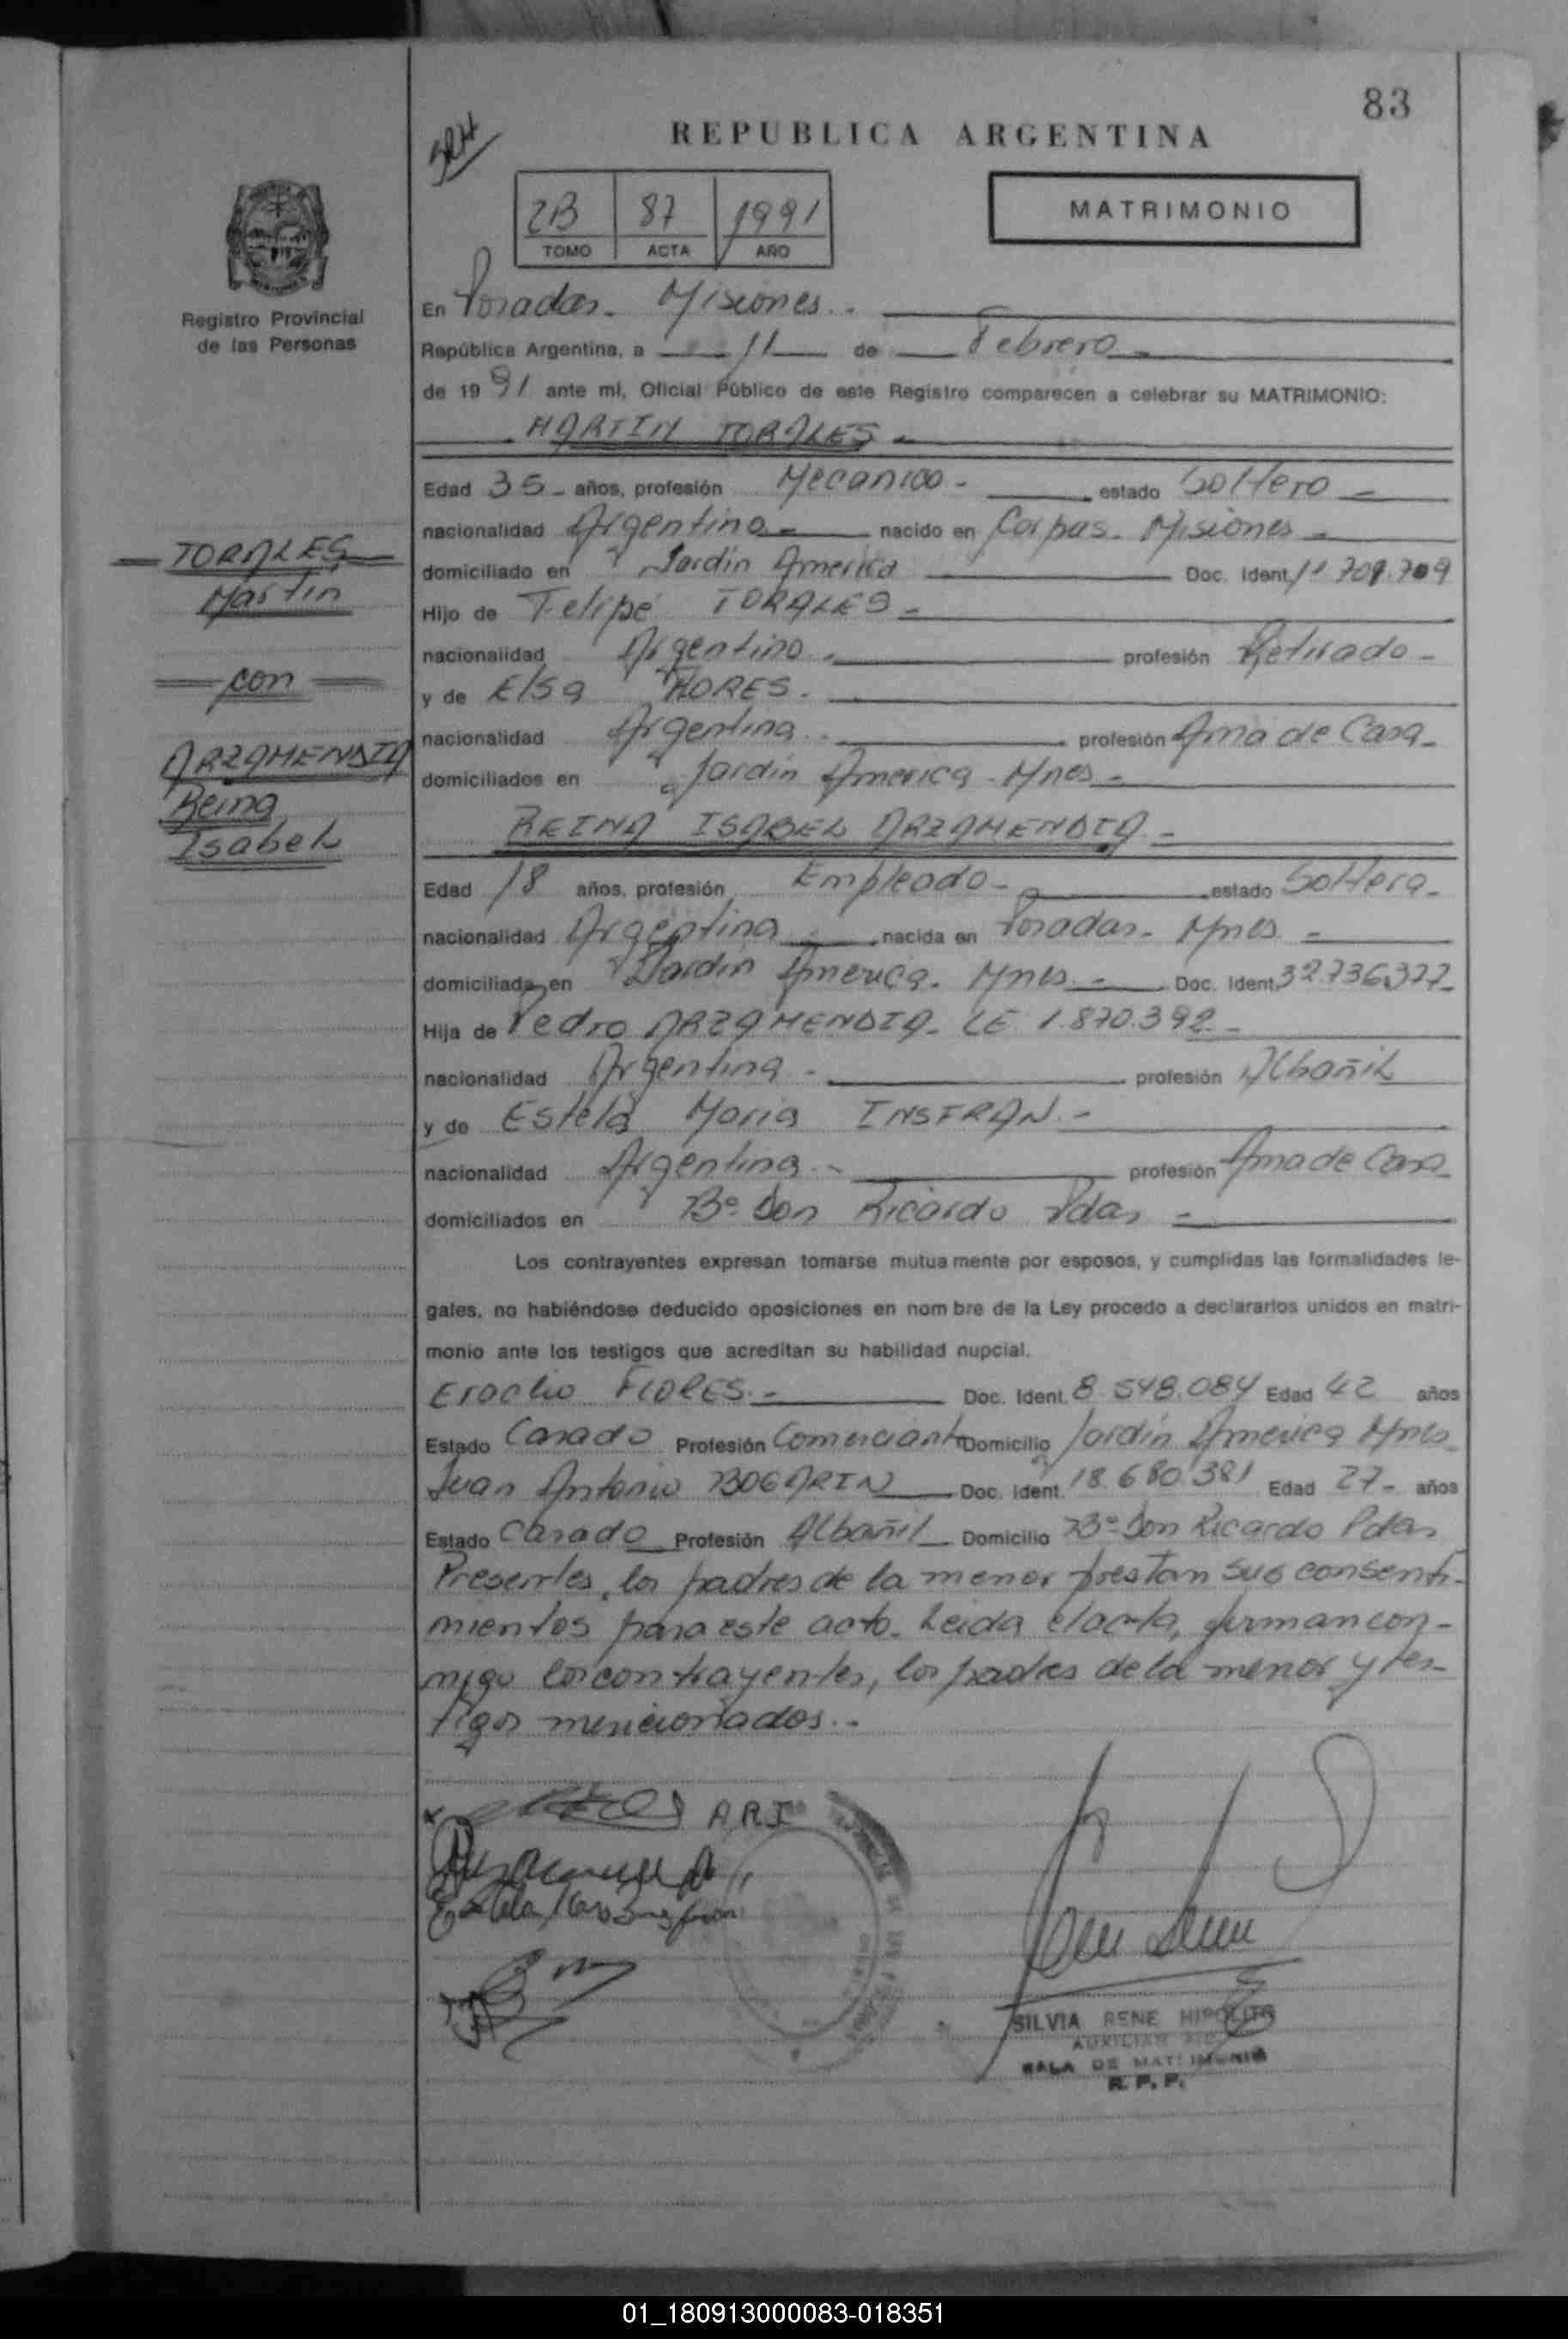 83
REPUBLICA ARGENTINA
MATRIMONIO
2B 87 1991
TOMO ACTA AÑO
Registro Provincial
de las Personas
En Posadas - Misiones.-
República Argentina, a 11 de Febrero -
de 1991 ante mi, Oficial Público de este Registro comparecen a celebrar su MATRIMONIO:
MARTIN TORALES -
Edad 35 - años, profesión Mecanico - estado Soltero -
nacionalidad Argentina - nacido en Corpus - Misiones -
domiciliado en Jardin America Doc. Ident. 11.709.709
Hijo de Felipe TORALES -
nacionalidad Argentino - profesión Retirado -
y de Elsa FLORES -
nacionalidad Argentina.- profesión Ama de Casa -
domiciliados en Jardin America - Mnes -
TORALES
Martin
con
ARZAMENDIA
Reina
Isabel
REINA ISABEL ARZAMENDIA -
Edad 18 años, profesión Empleada - estado Soltera -
nacionalidad Argentina - nacida en Posadas - Mnes -
domiciliada en Jardin America - Mnes - Doc. Ident. 32.736.377-
Hija de Pedro ARZAMENDIA - LE 1.870.392 -
nacionalidad Argentina - profesión Albañil
y de Estela Maria INSFRAN -
nacionalidad Argentina.- profesión Ama de Casa
domiciliados en Bº Don Ricardo Pdas -
Los contrayentes expresan tomarse mutuamente por esposos, y cumplidas las formalidades le-
gales, no habiéndose deducido oposiciones en nombre de la Ley procedo a declararlos unidos en matri-
monio ante los testigos que acreditan su habilidad nupcial.
Eraclio FLORES.- Doc. Ident. 8.548.084 Edad 42 años
Estado Casado Profesión Comerciante Domicilio Jardín America Mnes
Juan Antonio BOGARIN Doc. Ident. 18.680.381 Edad 27 - años
Estado Casado Profesión Albañil Domicilio Bº Don Ricardo Pdas
Presentes, los padres de la menor prestan sus consenti-
mientos para este acto. Leida el acta, firman con-
migo los contrayentes, los padres de la menor y tes-
tigos mencionados.-
ARI
SILVIA RENE HIPOLITO
AUXILIAR
SALA DE MATRIMONIO
R. P. P.
01_180913000083-018351